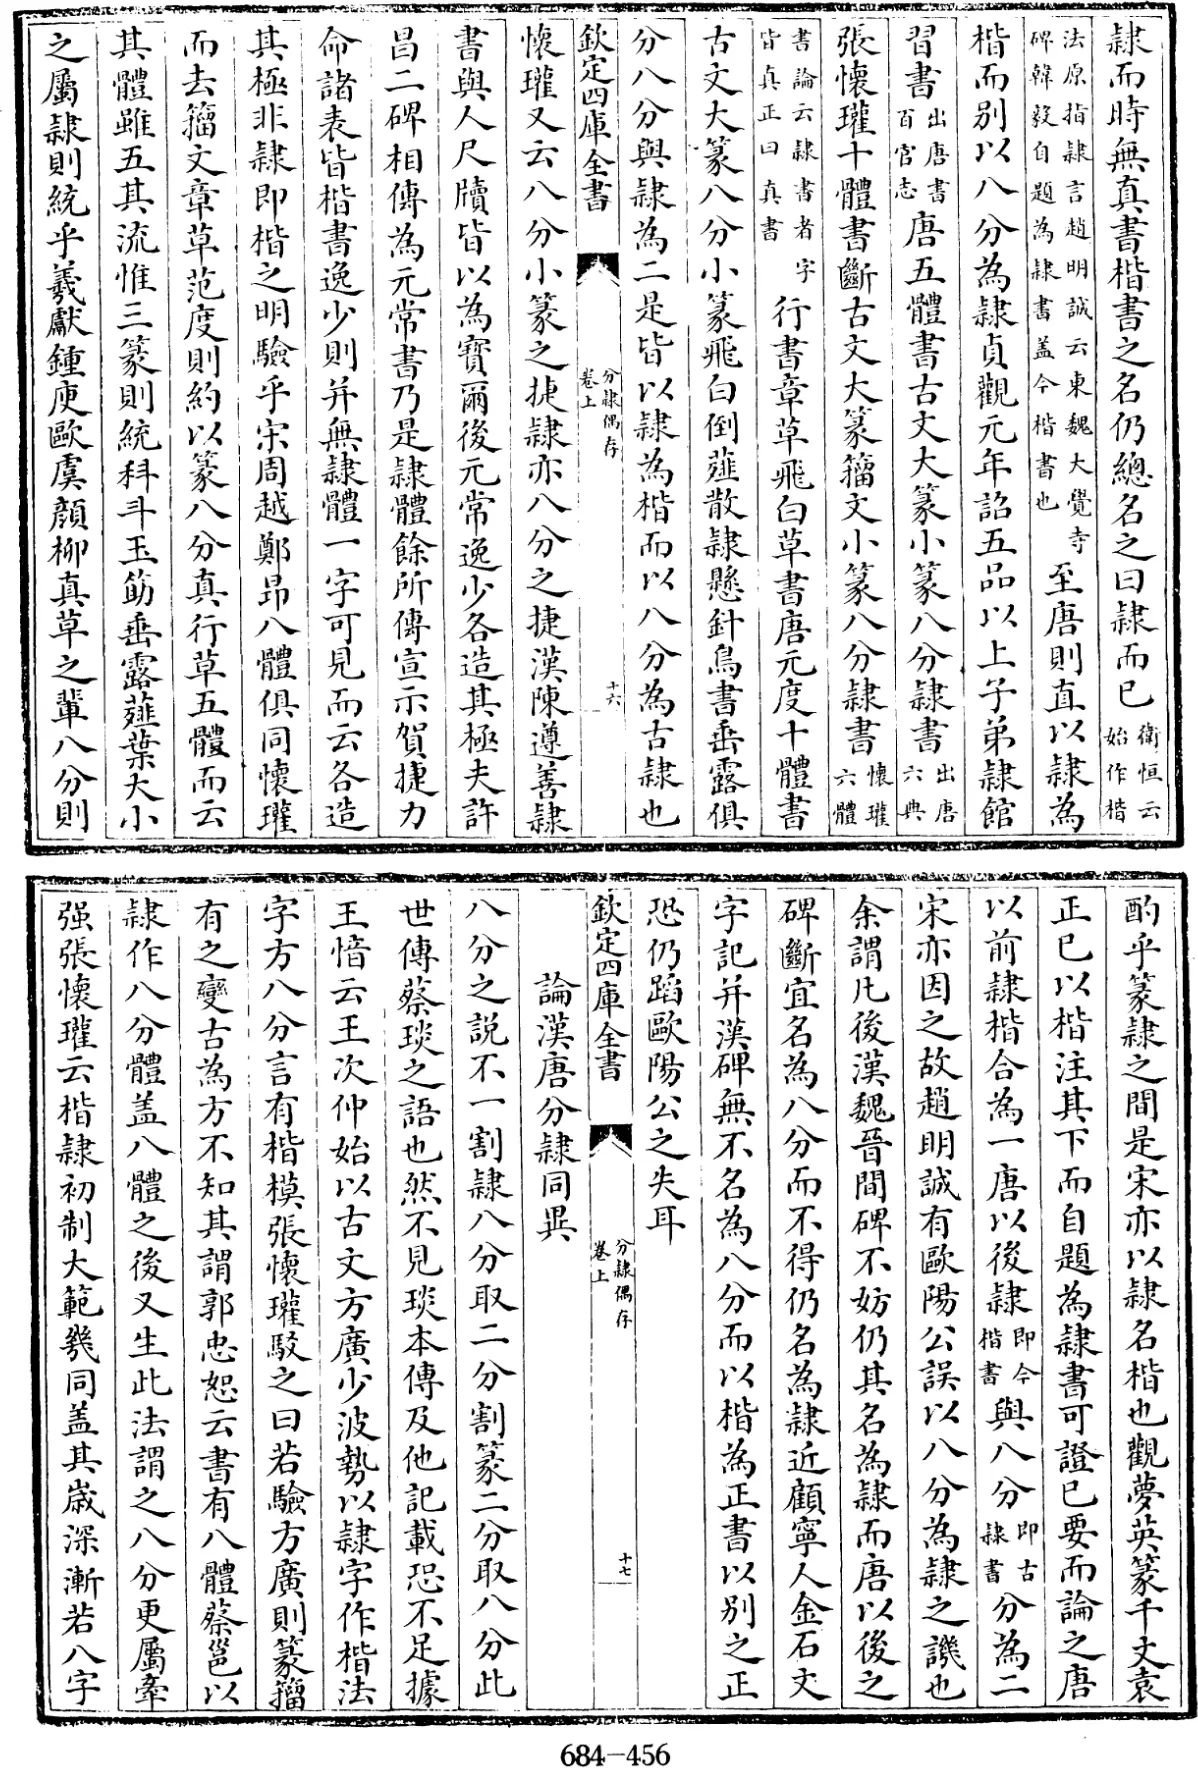 隸而時無真書楷書之名仍總名之曰隸而已衛恒云始作楷
法原指隸言趙明誠云東魏大覺寺碑韓毅自題為隸書盖今楷書也至唐則直以隸為
楷而别以八分為隸貞觀元年詔五品以上子弟隸館
習書出唐書百官志唐五體書古文大篆小篆八分隸書出唐六典
張懷瓘十體書斷古文大篆籀文小篆八分隸書懷瓘六體
書論云隸書者字皆真正曰真書行書章草飛白草書唐元度十體書
古文大篆八分小篆飛白倒薤散隸懸針鳥書垂露俱
分八分與隸為二是皆以隸為楷而以八分為古隸也
欽定四庫全書
分隸偶存
卷上
十六
懷瓘又云八分小篆之捷隸亦八分之捷漢陳遵善隸
書與人尺牘皆以為寶爾後元常逸少各造其極夫許
昌二碑相傳為元常書乃是隸體餘所傳宣示賀捷力
命諸表皆楷書逸少則并無隸體一字可見而云各造
其極非隸即楷之明驗乎宋周越鄭昂八體俱同懷瓘
而去籀文章草范度則約以篆八分真行草五體而云
其體雖五其流惟三篆則統科斗玉筯垂露薤葉大小
之屬隸則統乎羲獻鍾庾歐虞顔柳真草之輩八分則
酌乎篆隸之間是宋亦以隸名楷也觀夢英篆千文袁
正已以楷注其下而自題為隸書可證已要而論之唐
以前隸楷合為一唐以後隸即今楷書與八分即古隸書分為二
宋亦因之故趙明誠有歐陽公誤以八分為隸之譏也
余謂凡後漢魏晉間碑不妨仍其名為隸而唐以後之
碑斷宜名為八分而不得仍名為隸近顧寧人金石文
字記并漢碑無不名為八分而以楷為正書以别之正
恐仍蹈歐陽公之失耳
欽定四庫全書
分隸偶存
卷上
十七
論漢唐分隸同異
八分之說不一割隸八分取二分割篆二分取八分此
世傳蔡琰之語也然不見琰本傳及他記載恐不足據
王愔云王次仲始以古文方廣少波勢以隸字作楷法
字方八分言有楷模張懷瓘駁之曰若驗方廣則篆籀
有之變古為方不知其謂郭忠恕云書有八體蔡邕以
隸作八分體盖八體之後又生此法謂之八分更屬牽
强張懷瓘云楷隸初制大範幾同盖其歳深漸若八字
684-456